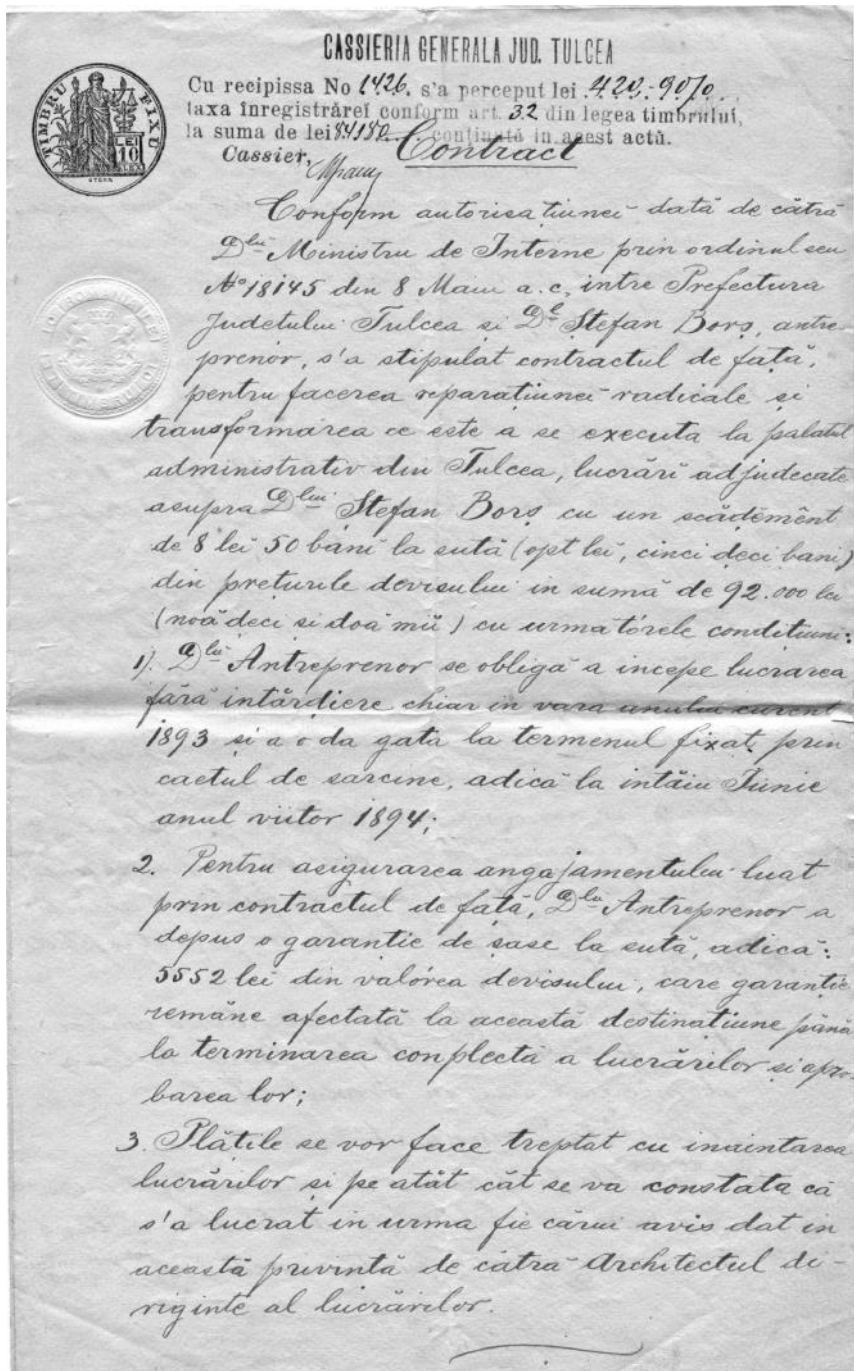 CASSIERIA GENERALA JUD. TULCEA
Cu recipissa No 1426. s'a perceput lei 420.-90%
taxa înregistrărei conform art. 32 din legea timbrului,
la suma de lei 84180 conținută in acest actŭ.
Cassier,
TIMBRU FIXU
LEI 10
STERN
Contract
Conform autorisațiunei dată de cătră
Dlui Ministru de Interne prin ordinul seu
No 18145 din 8 Maiu a.c, intre Prefectura
Județului Tulcea si Dl Ștefan Borș, antre
prenor, s'a stipulat contractul de față,
pentru facerea reparațiunei radicale și
transformarea ce este a se executa la palatul
administrativ din Tulcea, lucrări adjudecate
asupra Dlui Ștefan Borș cu un scădemênt
de 8 lei 50 bani la sută (opt lei, cinci deci bani)
din prețurile devisului in sumă de 92.000 lei
(noă deci si doă mii) cu urmatórele condițiuni:
1). Dlui Antreprenor se obligă a incepe lucrarea
fără intârdiere chiar in vara anului curent
1893 și a o da gata la termenul fixat prin
caetul de sarcine, adică la intâiu Iunie
anul viitor 1894;
2. Pentru asigurarea angajamentului luat
prin contractul de față, Dlu Antreprenor a
depus o garanție de șase la sută, adică:
5552 lei din valórea devisului, care garanție
remâne afectată la această destinațiune până
la terminarea conplectă a lucrărilor și apro-
barea lor;
3. Plățile se vor face treptat cu inaintarea
lucrărilor și pe atât cât se va constata că
s'a lucrat in urma fie cărui avis dat in
această privintă de cătră Architectul di-
riginte al lucrărilor.